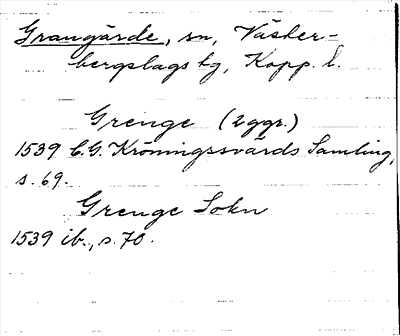 Grangärde, sn, Väster-
bergslags hg, Kopp. l.
Grenge (2 ggr.)
1539 C.G. Kröningssvärds Samling,
s. 69.
Grenge Sokn
1539 ib., s. 70.